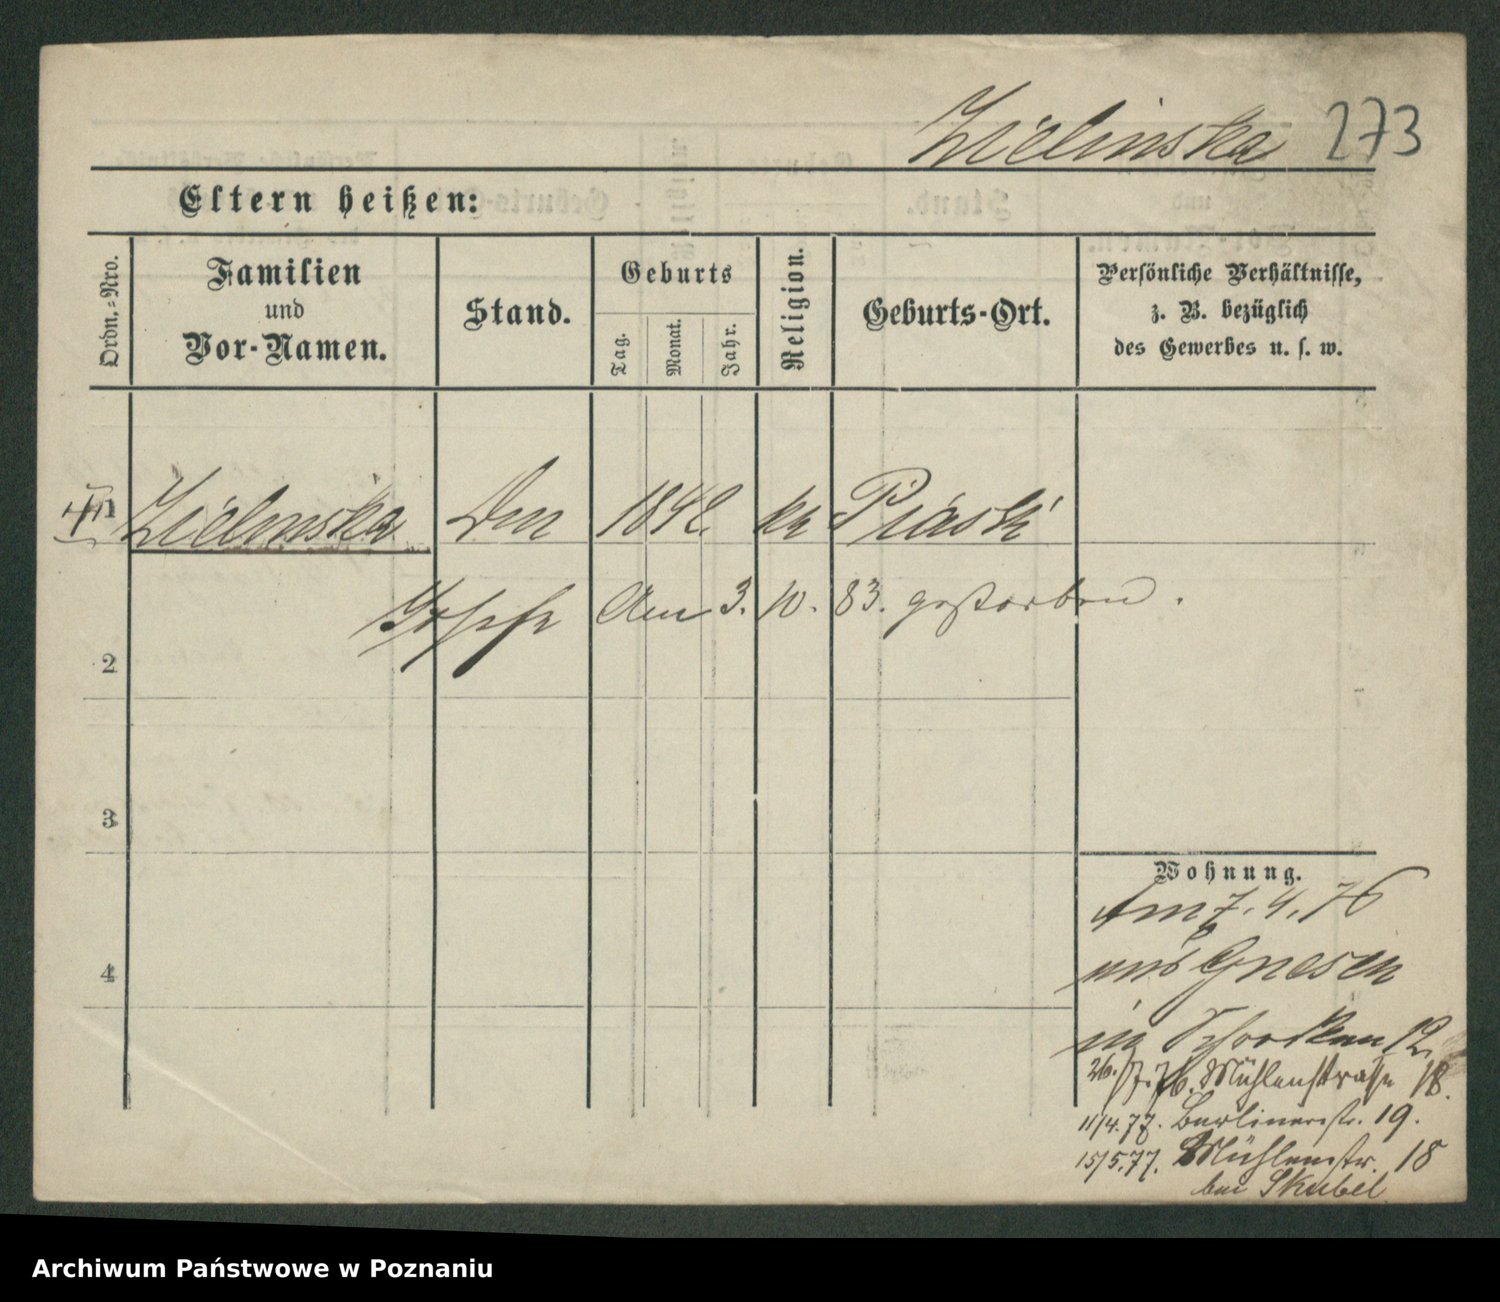 Zielinska 273
Eltern heißen:
Ordn.-Nro.
Familien
und
Vor-Namen.
Stand.
Geburts
Tag.
Monat.
Jahr.
Religion.
Geburts-Ort.
Persönliche Verhältnisse,
z. B. bezüglich
des Gewerbes u. s. w.
1 Zielinska 1842 Piaski
Am 3. 10. 83. gestorben.
2
3
4
Wohnung.
Am 7. 4. 76
aus Gnesen
in 12
26./7.76. Mühlenstraße 18.
11/4.77. Berlinerstr. 19.
15/5.77. Mühlenstr. 18
bei Skubel
Archiwum Państwowe w Poznaniu